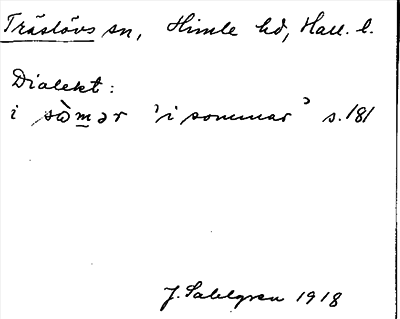 Träslövs sn, Himle hd, Hall. l.
Dialekt:
i sòmər 'i sommar' s. 181
J. Sahlgren 1918